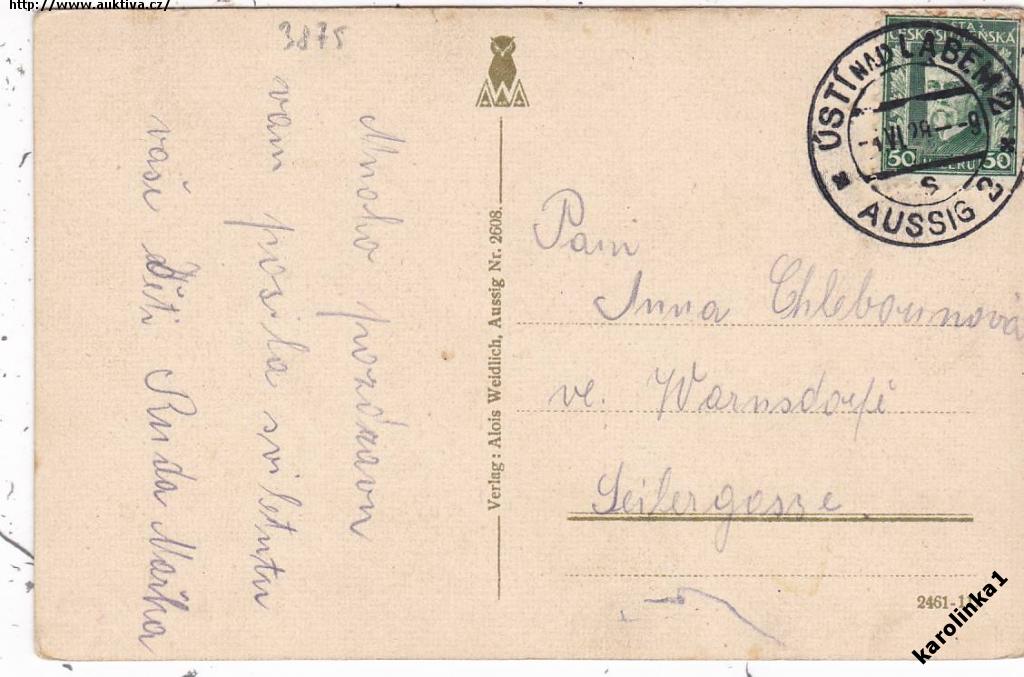 http://www.auktiva.cz/
3875
Mnoho pozdravu
vam posila sviletutu
vaše Děti Ruda Mařka
Verlag: Alois Weidlich, Aussig Nr. 2608.
ČESKOSLOVENSKÁ
50 50
ÚSTÍ NAD LABEM 2
VI 28 -9
S
AUSSIG 2
Pani
Anna Chlebounová
ve. Warnsdorfě
Seilergasse.
2461-11
karolinka1